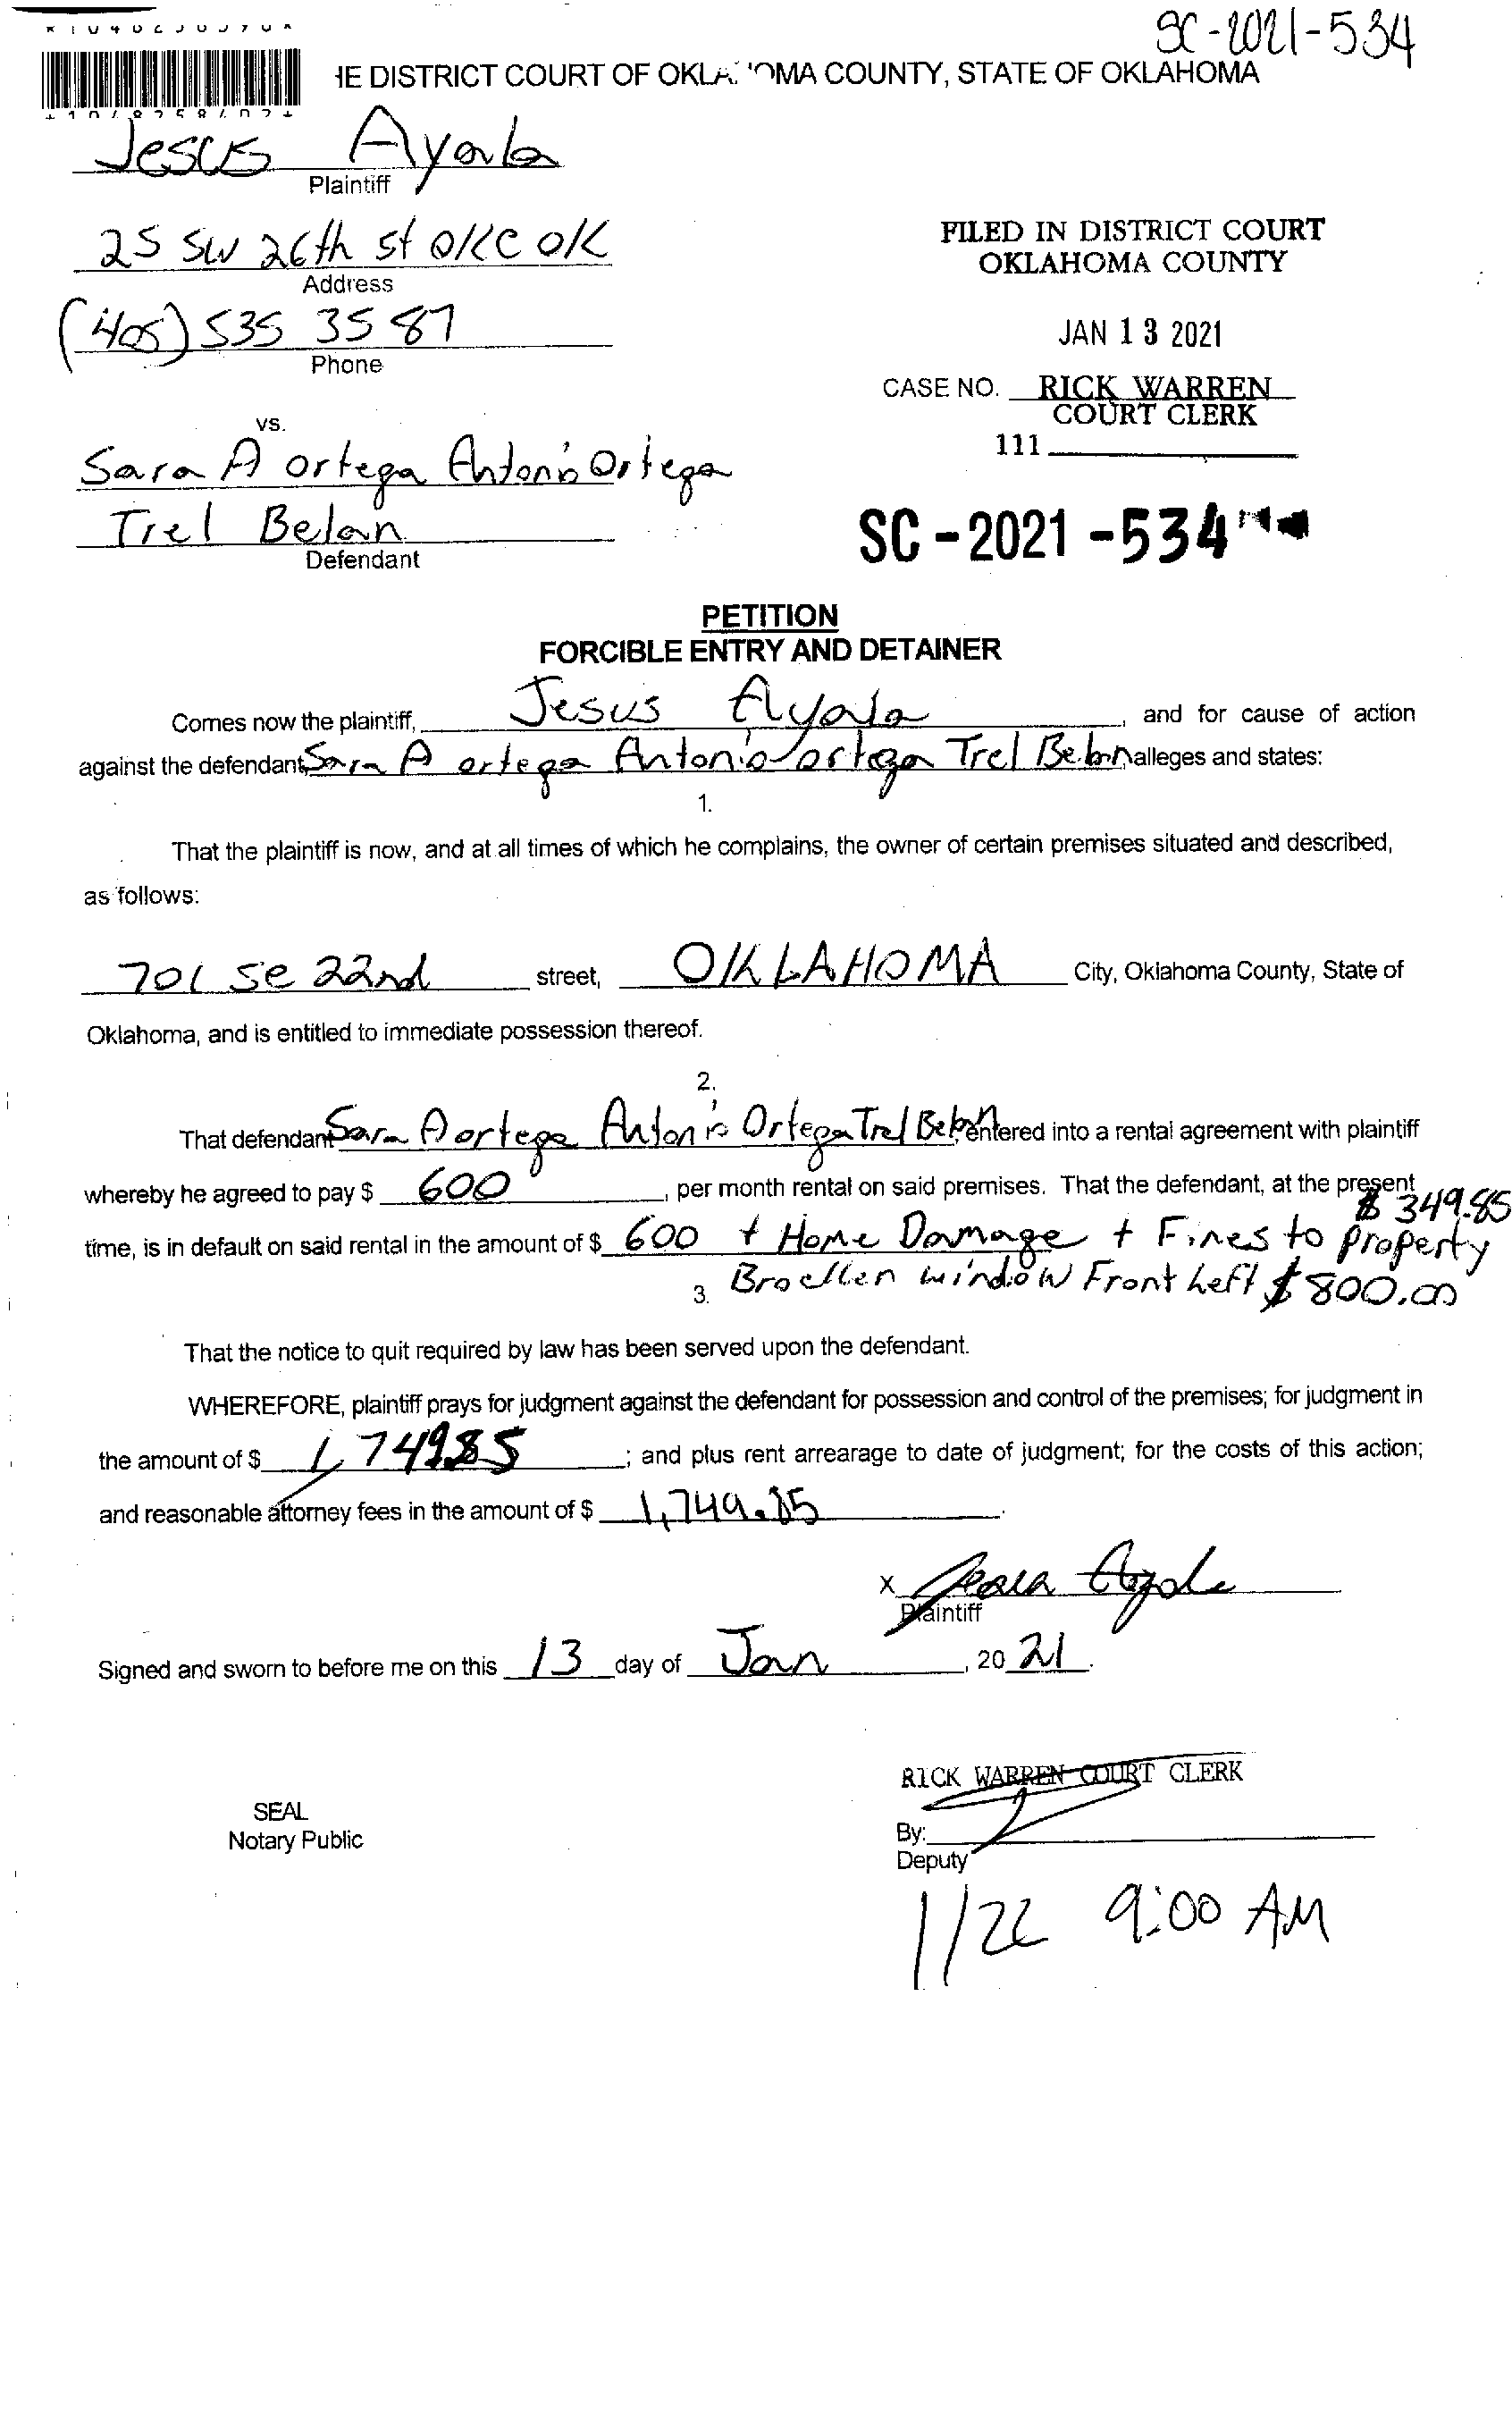 SC-2021-534
HE DISTRICT COURT OF OKLA. 'OMA COUNTY, STATE OF OKLAHOMA
Jesus Ayala
Plaintiff
25 SW 26th st OKC OK
Address
(405) 535 3587
Phone
FILED IN DISTRICT COURT
OKLAHOMA COUNTY
JAN 13 2021
CASE NO. RICK WARREN
COURT CLERK
111
vs.
Sara A ortega Antonio Ortega
Trel Belan
Defendant
SC-2021-534
PETITION
FORCIBLE ENTRY AND DETAINER
Comes now the plaintiff, Jesus Ayala, and for cause of action
against the defendant, Sara A ortega Antonio ortega Trel Belan alleges and states:
1.
That the plaintiff is now, and at all times of which he complains, the owner of certain premises situated and described,
as follows:
701 SE 22nd street, OKLAHOMA City, Oklahoma County, State of
Oklahoma, and is entitled to immediate possession thereof.
2.
That defendant Sara A ortega Antonio Ortega Trel Belan entered into a rental agreement with plaintiff
whereby he agreed to pay $ 600, per month rental on said premises. That the defendant, at the present
$ 349.85
time, is in default on said rental in the amount of $ 600 + Home Damage + Fines to property
3. Brocken window Front Left $800.00
That the notice to quit required by law has been served upon the defendant.
WHEREFORE, plaintiff prays for judgment against the defendant for possession and control of the premises; for judgment in
the amount of $ 1,749.85; and plus rent arrearage to date of judgment; for the costs of this action;
and reasonable attorney fees in the amount of $ 1,749.85.
x
Plaintiff
Signed and sworn to before me on this 13 day of Jan, 2021.
RICK WARREN COURT CLERK
SEAL
Notary Public
By:
Deputy
1/22 9:00 AM